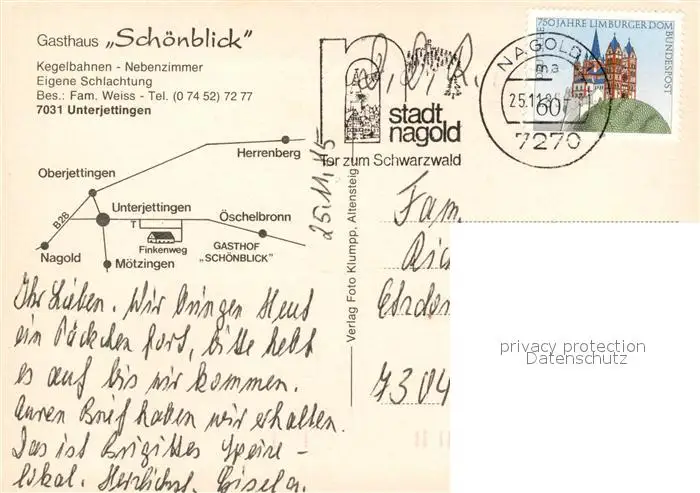 Gasthaus „Schönblick"
Kegelbahnen - Nebenzimmer
Eigene Schlachtung
Bes.: Fam. Weiss - Tel. (0 74 52) 72 77
7031 Unterjettingen
Herrenberg
Oberjettingen
B28
Unterjettingen
T
Öschelbronn
Finkenweg
GASTHOF
„SCHÖNBLICK"
Nagold
Mötzingen
Verlag Foto Klumpp, Altensteig
25.11.85
Ihr Lieben. Wir bringen Heut
ein Päckchen fort, bitte hebt
es auf bis wir kommen.
Euren Brief haben wir erhalten.
Das ist Brigittes
Herzlichst, Gisela.
D.D.R.
stadt
nagold
Tor zum Schwarzwald
NAGOLD 1
ma
25.11.85
7270
750 JAHRE LIMBURGER DOM
DEUTSCHE BUNDESPOST
60
Fam.
7304
privacy protection
Datenschutz